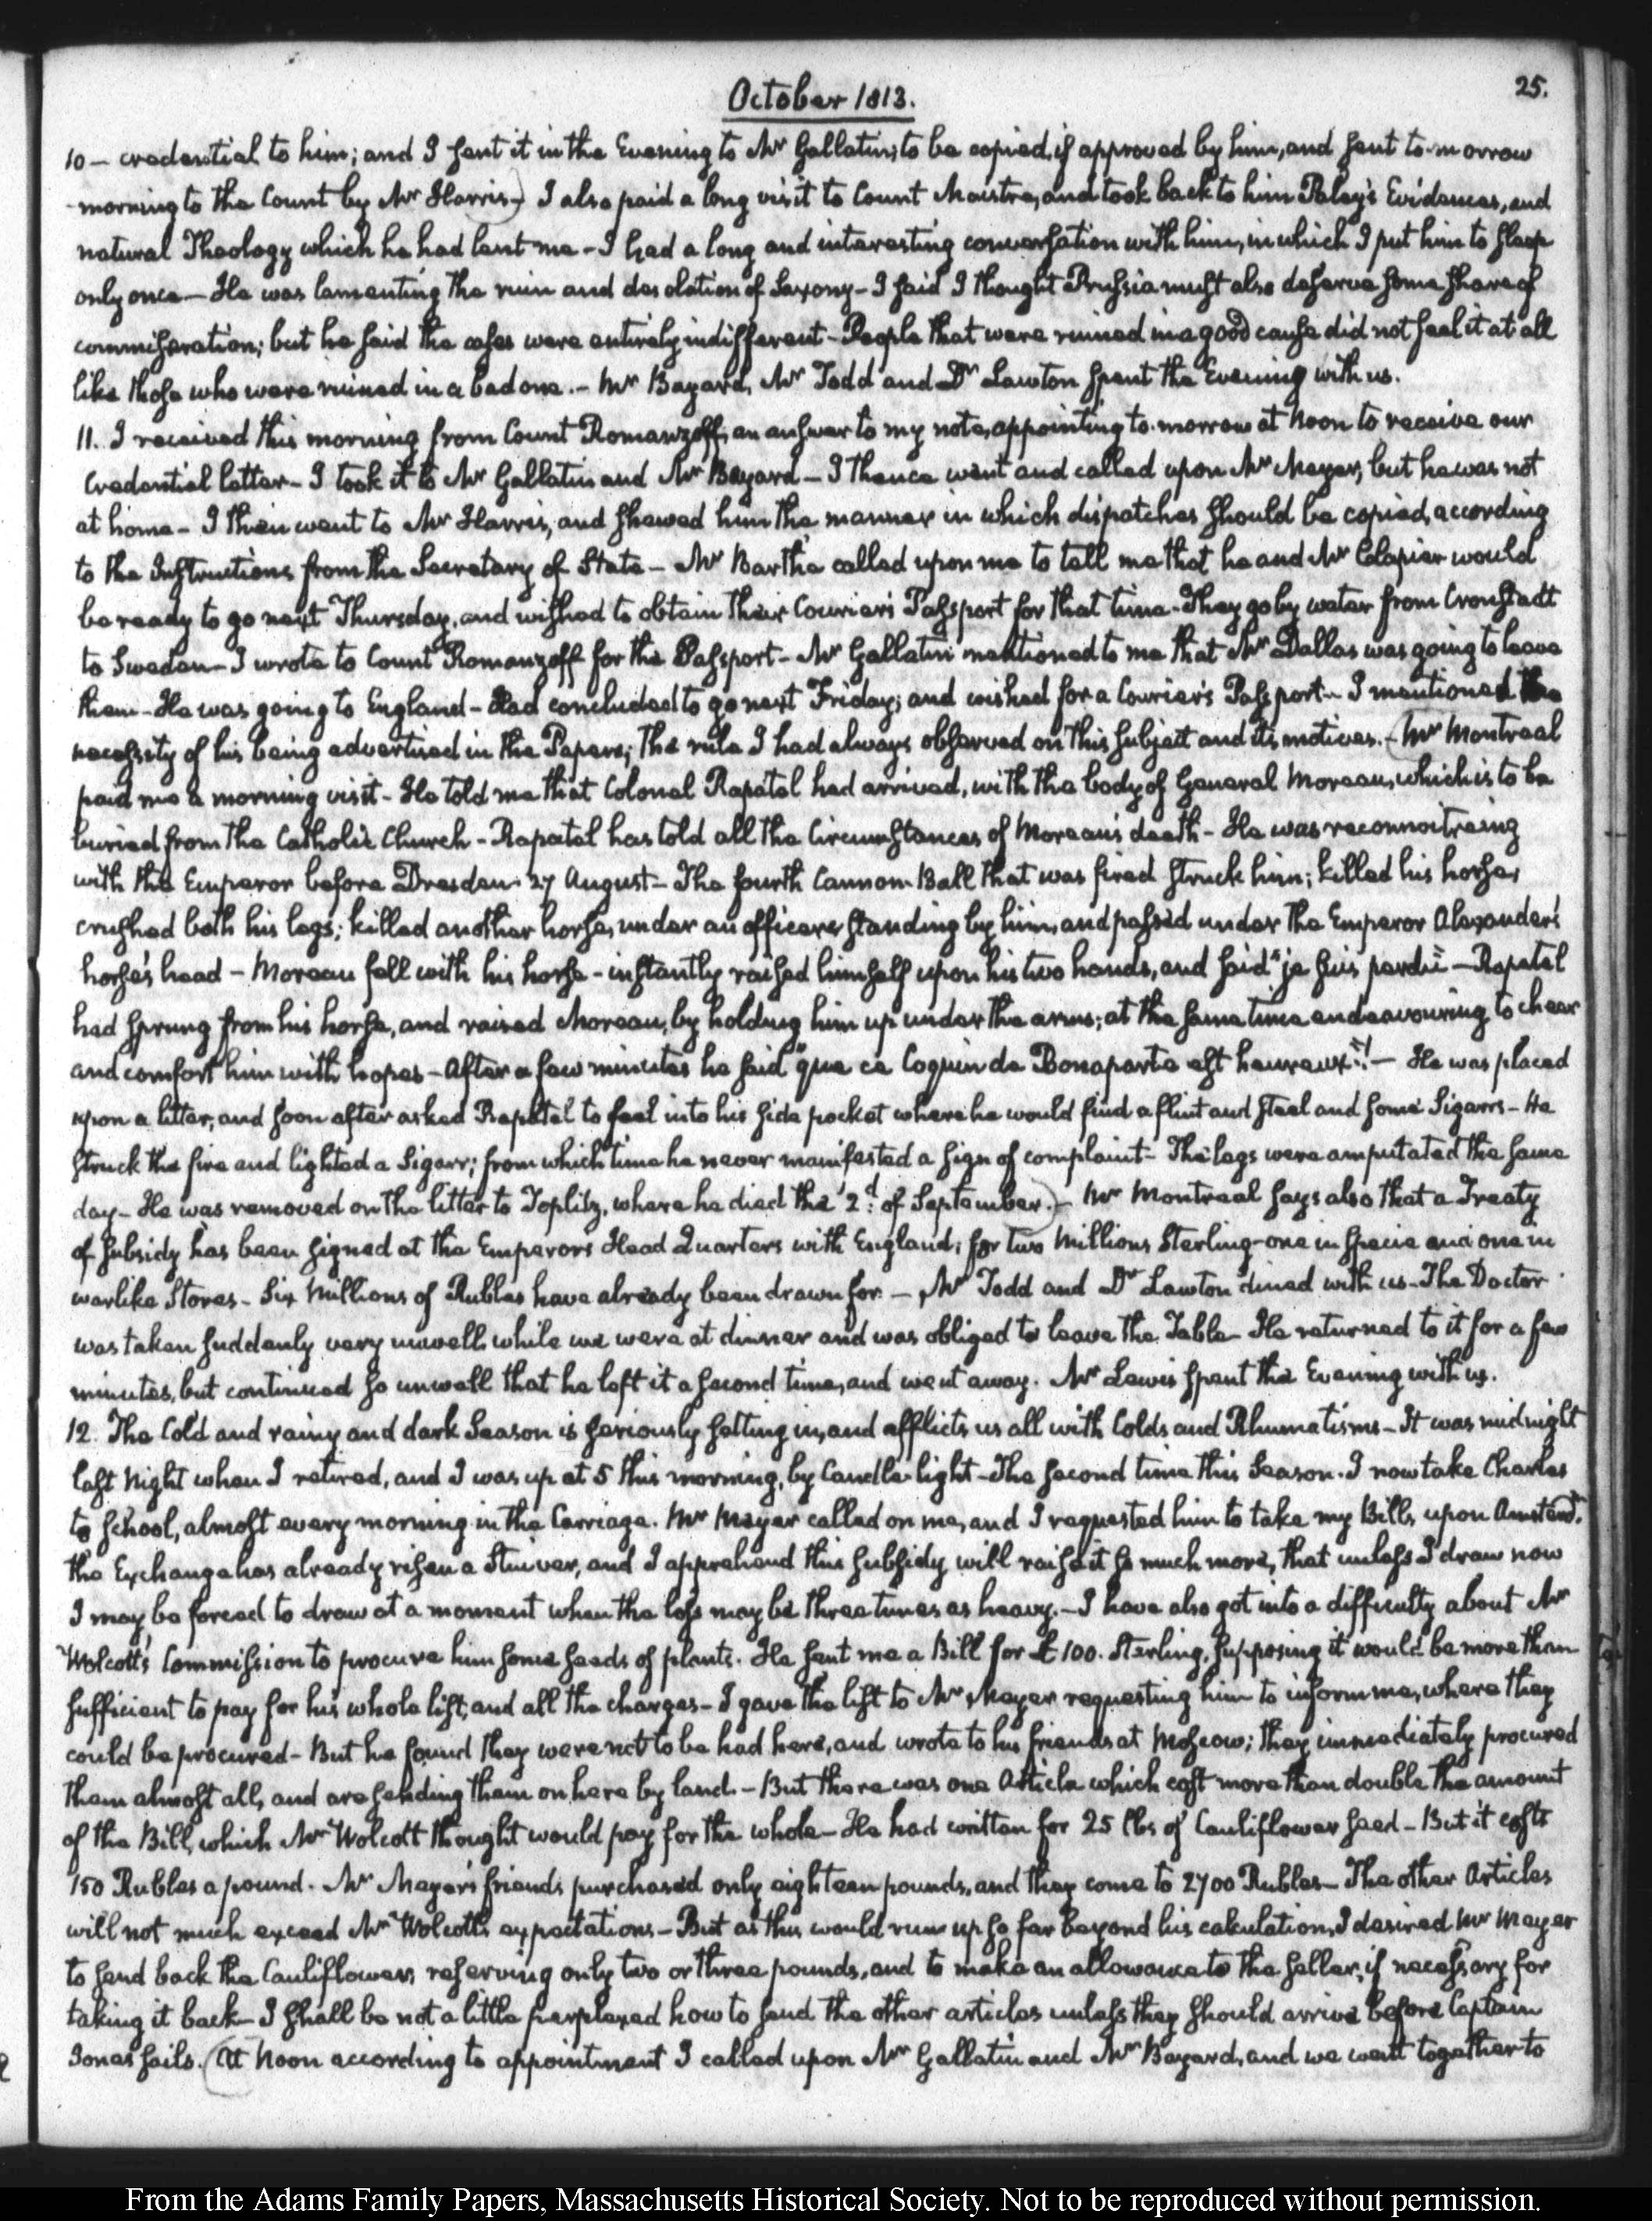 October 1813.
25.
10 — credential to him; and I sent it in the Evening to Mr Gallatin, to be copied, if approved by him, and sent to-morrow
morning to the Count by Mr Harris.) I also paid a long visit to Count Maistre, and took back to him Paley's Evidences, and
natural Theology which he had lent me - I had a long and interesting conversation with him, in which I put him to sleep
only once — He was lamenting the ruin and desolation of Saxony - I said I thought Prussia must also deserve some share of
commiseration; but he said the cases were entirely indifferent - People that were ruined in a good cause did not feel it at all
like those who were ruined in a bad one. - Mr Bayard, Mr Todd and Dr Lawton spent the Evening with us.
11. I received this morning from Count Romanzoff, an answer to my note, appointing to-morrow at Noon to receive our
Credential letter - I took it to Mr Gallatin and Mr Bayard — I thence went and called upon Mr Meyer, but he was not
at home - I then went to Mr Harris, and shewed him the manner in which dispatches should be copied, according
to the Instructions from the Secretary of State — Mr Barthe called upon me to tell me that he and Mr Clapier would
be ready to go next Thursday, and wished to obtain their Courier's Passport for that time - They go by water from Cronstadt
to Sweden - I wrote to Count Romanzoff for the Passport - Mr Gallatin mentioned to me that Mr Dallas was going to leave
them - He was going to England - Had concluded to go next Friday; and wished for a Courier's Passport - I mentioned the
necessity of his being advertised in the Papers; The rule I had always observed on this subject and its motives. - (Mr Montreal
paid me a morning visit - He told me that Colonel Rapatel had arrived, with the body of General Moreau, which is to be
buried from the Catholic Church - Rapatel has told all the Circumstances of Moreau's death - He was reconnoitreing
with the Emperor before Dresden 27 August - The fourth Cannon-Ball that was fired struck him; killed his horse,
crushed both his legs; killed another horse, under an officer standing by him, and passed under the Emperor Alexander's
horse's head - Moreau fell with his horse - instantly raised himself upon his two hands, and said "je suis perdu" — Rapatel
had sprung from his horse, and raised Moreau, by holding him up under the arms; at the same time endeavouring to chear
and comfort him with hopes - After a few minutes he said "que ce Coquin de Bonaparte est heureux"! — He was placed
upon a litter, and soon after asked Rapatel to feel into his side pocket where he would find a flint and steel and some Sigarrs - He
struck the fire and lighted a Sigarr; from which time he never manifested a sign of complaint - The legs were amputated the same
day - He was removed on the litter to Toplitz, where he died the 2d of September.) - Mr Montreal says also that a Treaty
of subsidy has been signed at the Emperor's Head Quarters with England; for two Millions Sterling - one in specie and one in
warlike Stores - Six Millions of Rubles have already been drawn for — Mr Todd and Dr Lawton dined with us - The Doctor
was taken suddenly very unwell while we were at dinner and was obliged to leave the Table - He returned to it for a few
minutes, but continued so unwell that he left it a second time, and went away. Mr Lewis spent the Evening with us.
12. The Cold and rainy and dark Season is seriously setting in, and afflicts us all with Colds and Rhumatisms - It was midnight
last Night when I retired, and I was up at 5 this morning, by Candle-light - The second time this Season. I now take Charles
to school, almost every morning in the Carriage. Mr Meyer called on me, and I requested him to take my Bills upon Amsterd.m
the Exchange has already risen a Stuiver, and I apprehend this subsidy will raise it so much more, that unless I draw now
I may be forced to draw at a moment when the loss may be three times as heavy. - I have also got into a difficulty about Mr
Wolcott's Commission to procure him some seeds of plants. He sent me a Bill for £100. Sterling, supposing it would be more than
sufficient to pay for his whole list, and all the charges - I gave the list to Mr Meyer requesting him to inform me, where they
could be procured - But he found they were not to be had here, and wrote to his friends at Moscow; they immediately procured
them almost all, and are sending them on here by land. - But there was one Article which cost more than double the amount
of the Bill, which Mr Wolcott thought would pay for the whole - He had written for 25 lbs of Cauliflower seed - But it costs
150 Rubles a pound. Mr Meyer's friends purchased only eighteen pounds, and they come to 2700 Rubles - The other Articles
will not much exceed Mr Wolcott's expectations - But as this would run up so far beyond his calculation, I desired Mr Meyer
to send back the Cauliflower, reserving only two or three pounds, and to make an allowance to the seller, if necessary for
taking it back - I shall be not a little perplexed how to send the other articles unless they should arrive before Captain
Jones sails. (At Noon according to appointment I called upon Mr Gallatin and Mr Bayard, and we went together to
From the Adams Family Papers, Massachusetts Historical Society. Not to be reproduced without permission.